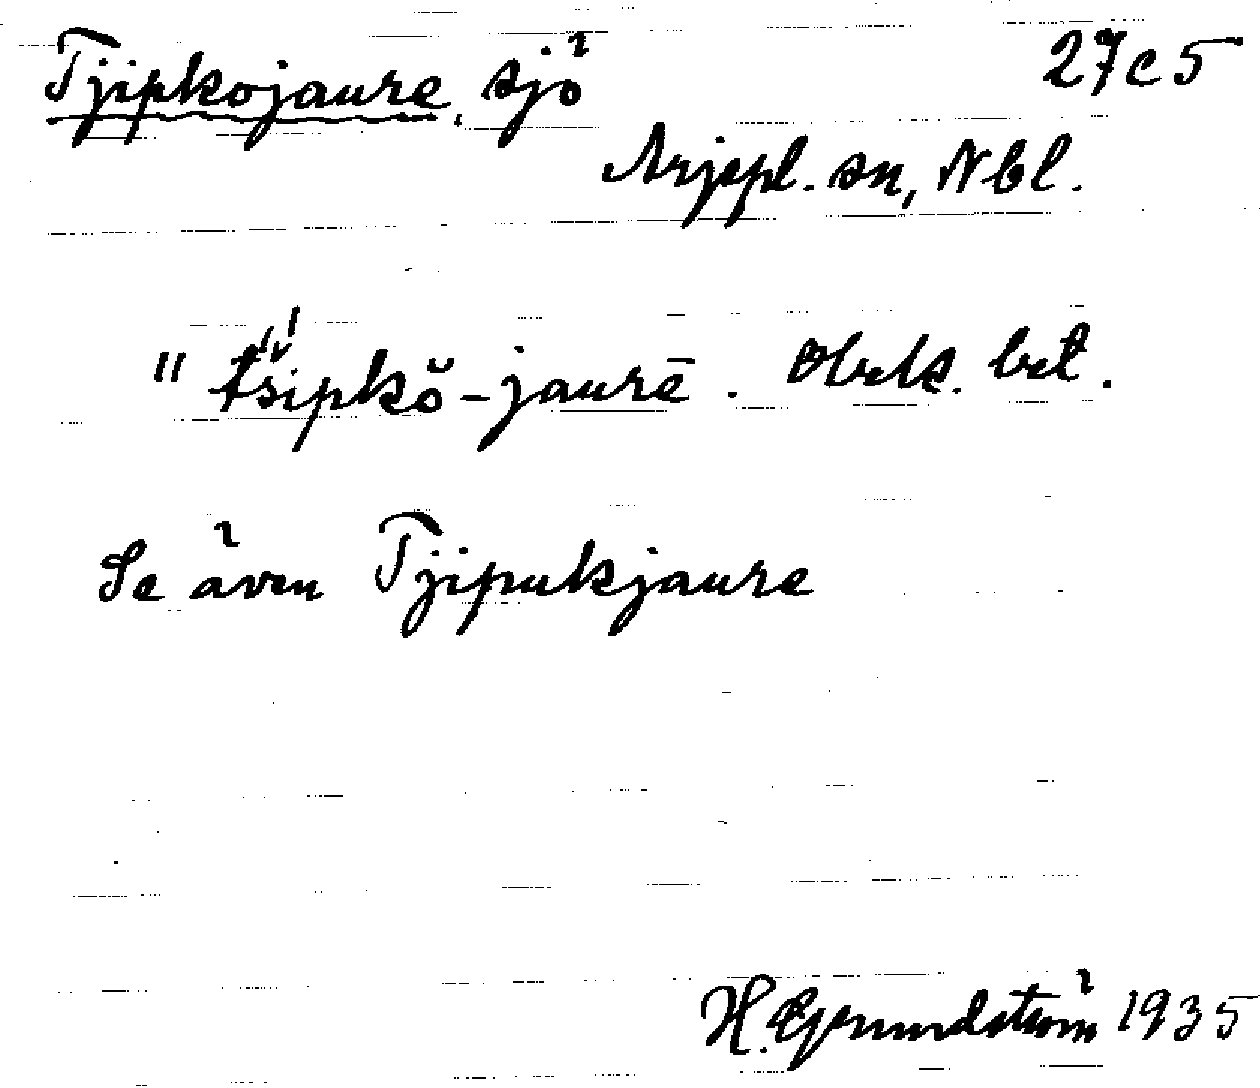 Tjipkojaure, sjö 27c5
Arjepl. sn, Nbl.
" t́šipkŏ-jaurē. Obek. bet.
Se även Tjipukjaure
H. Grundström 1935